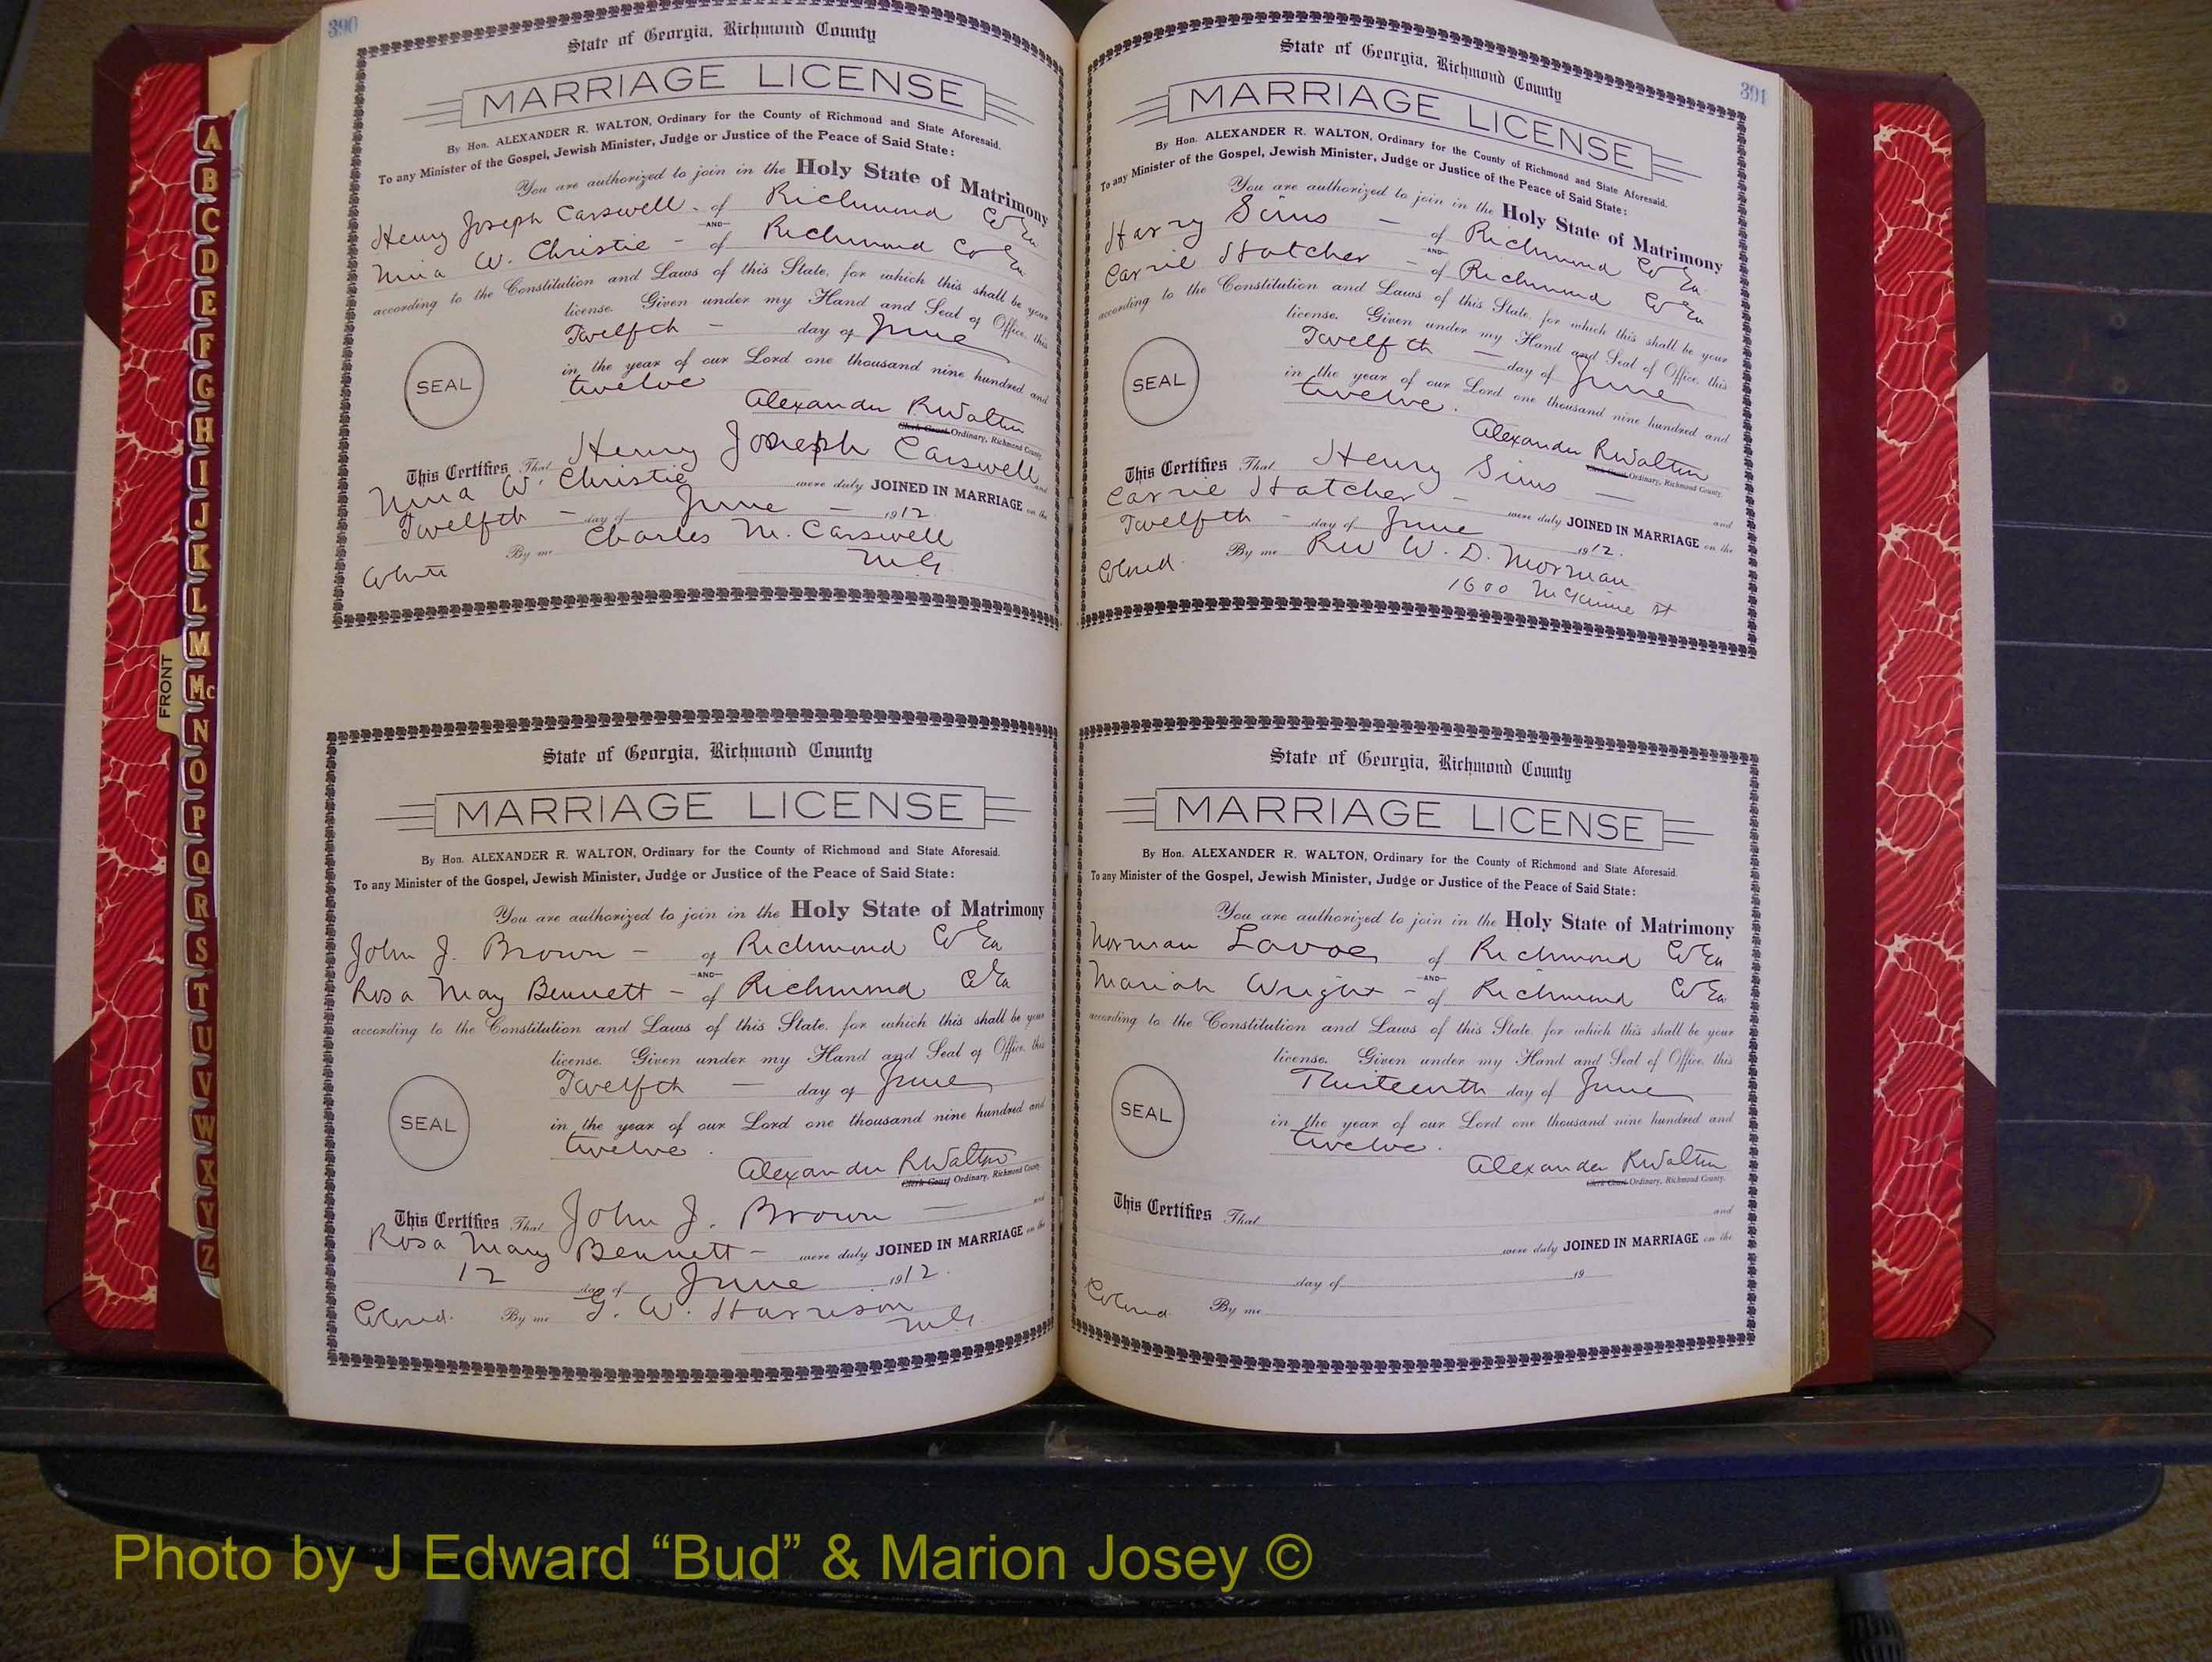 390
State of Georgia, Richmond County
MARRIAGE LICENSE
By Hon. ALEXANDER R. WALTON, Ordinary for the County of Richmond and State Aforesaid.
To any Minister of the Gospel, Jewish Minister, Judge or Justice of the Peace of Said State:
You are authorized to join in the Holy State of Matrimony
Henry Joseph Carswell - of Richmond Co Ga
AND
Nina W. Christie - of Richmond Co Ga
according to the Constitution and Laws of this State, for which this shall be your
license. Given under my Hand and Seal of Office, this
Twelfth - day of June
in the year of our Lord one thousand nine hundred and
twelve
SEAL
Alexander R Walton
Clerk Court Ordinary, Richmond County.
This Certifies That Henry Joseph Carswell and
Nina W. Christie were duly JOINED IN MARRIAGE on the
Twelfth - day of June - 1912.
By me Charles M. Carswell
White M.G.
State of Georgia, Richmond County
MARRIAGE LICENSE
By Hon. ALEXANDER R. WALTON, Ordinary for the County of Richmond and State Aforesaid.
To any Minister of the Gospel, Jewish Minister, Judge or Justice of the Peace of Said State:
You are authorized to join in the Holy State of Matrimony
John J. Brown - of Richmond Co Ga
AND
Rosa May Bennett - of Richmond Co Ga
according to the Constitution and Laws of this State, for which this shall be your
license. Given under my Hand and Seal of Office, this
Twelfth - day of June
in the year of our Lord one thousand nine hundred and
twelve.
SEAL
Alexander R Walton
Clerk Court Ordinary, Richmond County.
This Certifies That John J. Brown - and
Rosa May Bennett - were duly JOINED IN MARRIAGE on the
12 day of June 1912.
Colored. By me G. W. Harrison
M.G.
391
State of Georgia, Richmond County
MARRIAGE LICENSE
By Hon. ALEXANDER R. WALTON, Ordinary for the County of Richmond and State Aforesaid.
To any Minister of the Gospel, Jewish Minister, Judge or Justice of the Peace of Said State:
You are authorized to join in the Holy State of Matrimony
Harry Sims - of Richmond Co Ga
AND
Carrie Hatcher - of Richmond Co Ga
according to the Constitution and Laws of this State, for which this shall be your
license. Given under my Hand and Seal of Office, this
Twelfth - day of June
in the year of our Lord one thousand nine hundred and
twelve.
SEAL
Alexander R Walton
Clerk Court Ordinary, Richmond County.
This Certifies That Henry Sims - and
Carrie Hatcher - were duly JOINED IN MARRIAGE on the
Twelfth - day of June 1912.
Colored. By me Rev W. D. Norman
1600 McKinne St
State of Georgia, Richmond County
MARRIAGE LICENSE
By Hon. ALEXANDER R. WALTON, Ordinary for the County of Richmond and State Aforesaid.
To any Minister of the Gospel, Jewish Minister, Judge or Justice of the Peace of Said State:
You are authorized to join in the Holy State of Matrimony
Norman Lavoe of Richmond Co Ga
AND
Mariah Wright - of Richmond Co Ga
according to the Constitution and Laws of this State, for which this shall be your
license. Given under my Hand and Seal of Office, this
Thirteenth day of June
in the year of our Lord one thousand nine hundred and
twelve.
SEAL
Alexander R Walton
Clerk Court Ordinary, Richmond County.
This Certifies That and
were duly JOINED IN MARRIAGE on the
day of 19
Colored By me
A
B
C
D
E
F
G
H
I
J
K
L
M
Mc
N
O
P
Q
R
S
T
U
V
W
X
Y
Z
FRONT
Photo by J Edward “Bud” & Marion Josey ©